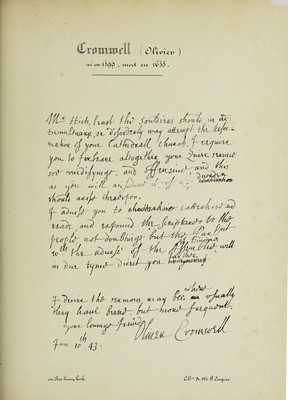 Cromwell (Olivier)
né en 1599, mort en 1658.
Mr. Hich, least the Souldiers should in any
tumultuary, or disorderly way attempt the reformation
of your Cathedrall Church, I require
you to forbeare altogether your Quire service
soe unedifyinge, and offensive, and this
as you will answeare it, if any disorder
should arise thereupon.
I advise you to catechise and
reade and expound the Scripture to the
people, not doubtinge but the Parlmt
wth the advise of the will
in due tyme direct you further
I desire the sermons may bee where usually
they have bene but more frequent,
your lovinge freind
Oliver Cromwell
Jan 10th 43.